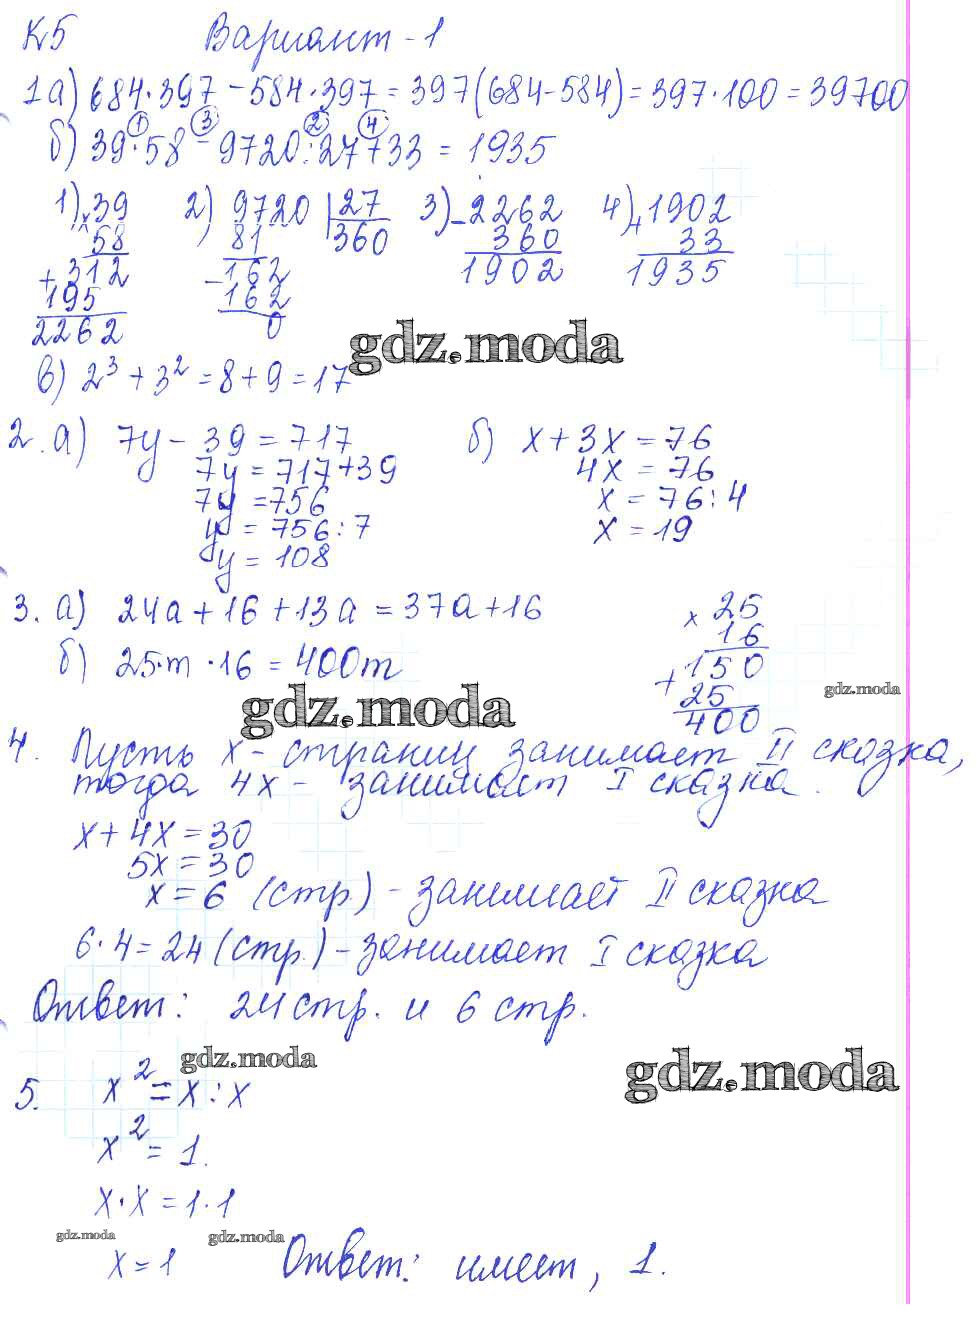 К5 Вариант - 1
1а) 684·397 - 584·397 = 397(684-584) = 397·100 = 39700
1 3 2 4
б) 39·58 - 9720:27+33 = 1935
1) 39 2) 9720 27 3) 2262 4) 1902
× 58 81 360 - 360 + 33
+ 312 - 162 1902 1935
195 162
2262 0
gdz.moda
в) 2³ + 3² = 8 + 9 = 17
2. а) 7у - 39 = 717 б) х + 3х = 76
7у = 717+39 4х = 76
7у = 756 х = 76:4
у = 756:7 х = 19
у = 108
3. а) 24а + 16 + 13а = 37а + 16 × 25
16
б) 25·m·16 = 400m + 150
25
gdz.moda gdz.moda
400
4. Пусть х - страниц занимает II сказка,
тогда 4х - занимает I сказка.
х + 4х = 30
5х = 30
х = 6 (стр.) - занимает II сказка
6·4 = 24 (стр.) - занимает I сказка
Ответ: 24 стр. и 6 стр.
gdz.moda gdz.moda
5. х² = х : х
х² = 1.
х·х = 1·1
gdz.moda gdz.moda
х = 1 Ответ: имеет, 1.